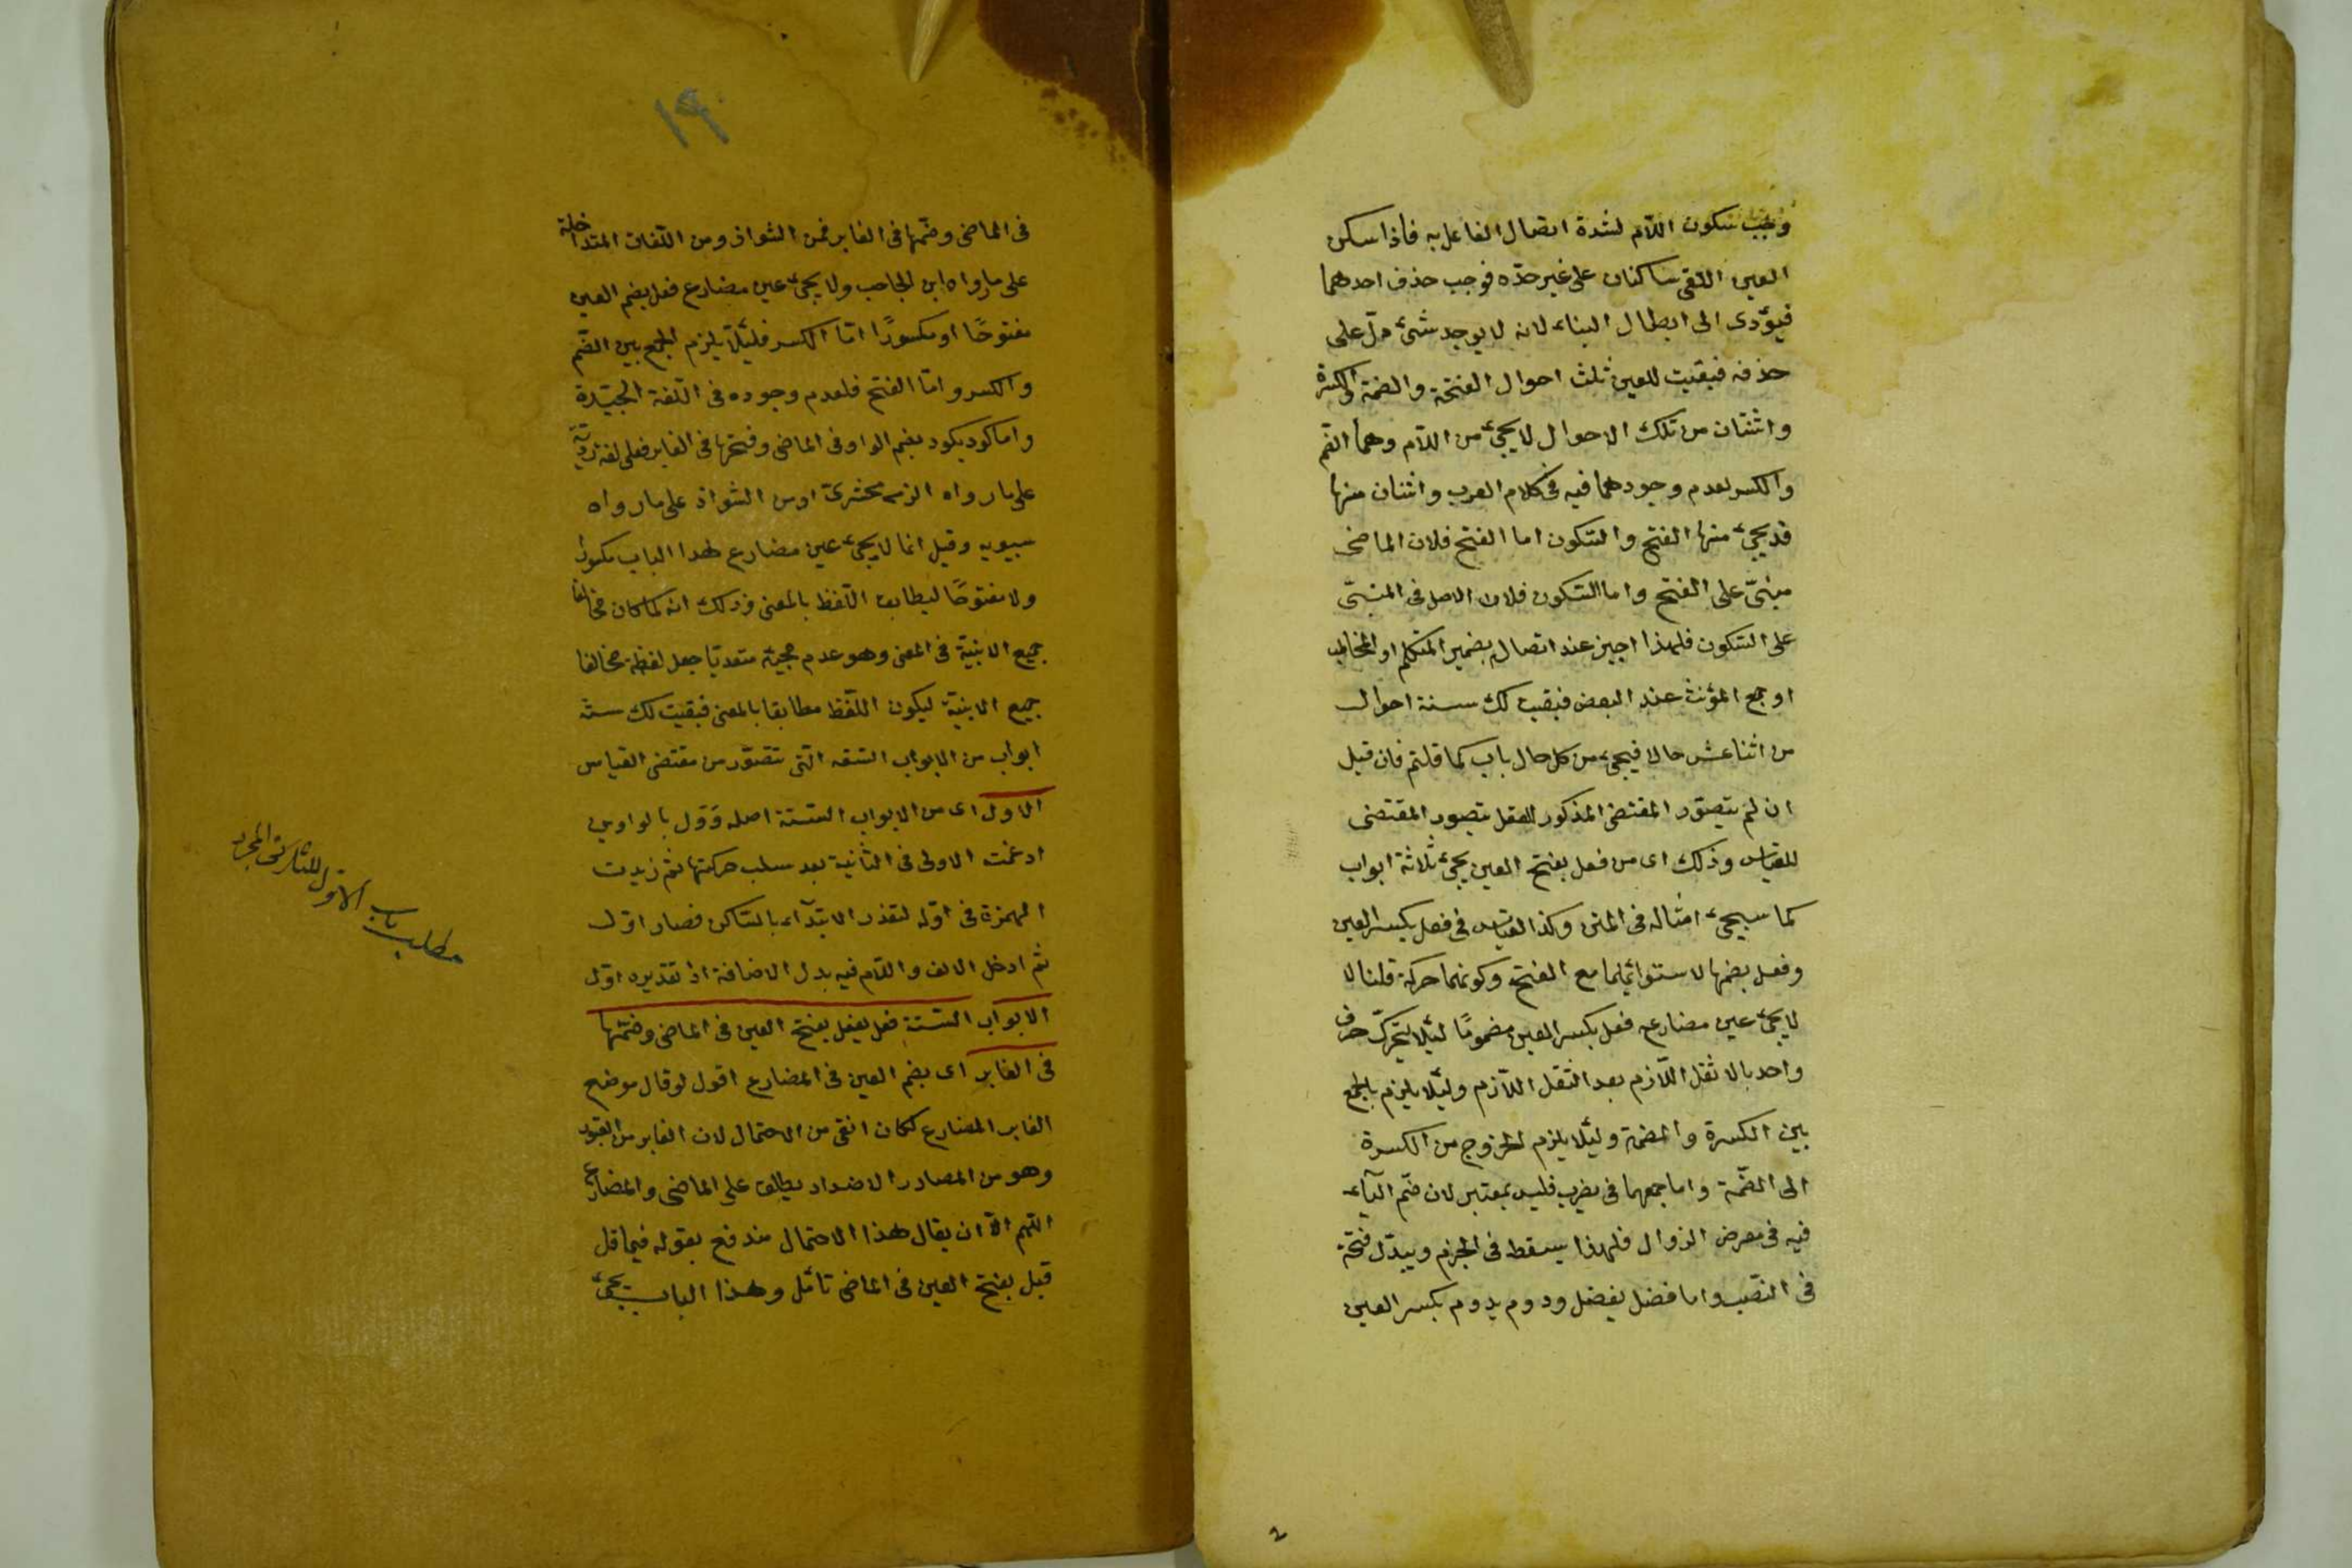 وجب سكون اللام لشدة اتصال الفاعل به فاذا سكن
العين التقى ساكنان على غير حدّه فوجب حذف احدهما
فيؤدى الى ابطال البناء لانه لا يوجد شئ دلّ على
حذفه فبقيت للعين ثلث احوال الفتحة والضمة والكسرة
واثنتان من تلك الاحوال لا يجئ من اللام وهما الضم
والكسر لعدم وجودهما فيه فى كلام العرب واثنان منها
قد يجئ منها الفتح والسّكون اما الفتح فلان الماضى
مبنىّ على الفتح واما السّكون فلان الاصل فى المبنىّ
على السّكون فلهذا اجيز عند اتصاله بضمير المتكلم او المخاطب
او جمع المؤنث عند البعض فبقيت لك ستة احوال
من اثنا عشر حالا فيجئ من كل حال باب كما قلتم فان قيل
ان لم يتصوّر المقتضى المذكور للعقل يتصور المقتضى
للقياس وذلك اى من فعل بفتح العين يجئ ثلاثة ابواب
كما سيجئ امثاله فى المتن وكذا القياس فى فعل بكسر العين
وفعل بضمها لاستوائهما مع الفتح وكونهما حركة قلنا لا
لا يجئ عين مضارع فعل بكسر العين مضموما لئلا يتحرك حرف
واحد بالاثقل اللّازم بعد الثقل اللّازم ولئلا يلزم الجمع
بين الكسرة والضمة ولئلا يلزم الخروج من الكسرة
الى الضّمة واما جمعهما فى يضرب فليس بمعتبر لان ضم البآء
فيه فى معرض الزوال فلهذا يسقط فى الجزم ويبدّل فتحة
فى النّصب واما فضل يفضل ودوم يدوم بكسر العين
فى الماضى وضمّها فى الغابر فمن الشواذ ومن اللّغات المتداخلة
على ما رواه ابن الحاجب ولا يجئ عين مضارع فعل بضم العين
مفتوحًا او مكسورًا امّا الكسر فلئلّا يلزم الجمع بين الضّم
والكسر وامّا الفتح فلعدم وجوده فى اللّغة الجيّدة
واما كود يكود بضم الواو فى الماضى وفتحها فى الغابر فعلى لغة رديّة
على ما رواه الزمخشرىّ او من الشواذ على ما رواه
سيبويه وقيل انما لا يجئ عين مضارع هذا الباب مكسورا
ولا مفتوحًا ليطابق اللّفظ بالمعنى وذلك انه لما كان مخالفا
جميع الابنية فى المعنى وهو عدم مجيئه متعديّا جعل لفظه مخالفا
جميع الابنية ليكون اللّفظ مطابقا بالمعنى فبقيت لك ستة
ابواب من الابواب التسعة الّتى تتصوّر من مقتضى القياس
الاول اى من الابواب السّتة اصله ووَل بالواوين
ادغمت الاولى فى الثانية بعد سلب حركتها ثم زيدت
الهمزة فى اوّله لتعذر الابتدآء بالسّاكن فصار اوّل
ثم ادخل الالف واللّام فيه بدل الاضافة اذ تقديره اوّل
الابواب السّتة فعل يفعل بفتح العين فى الماضى وضمّها
فى الغابر اى بضم العين فى المضارع اقول لو قال موضع
الغابر المضارع لكان انقى من الاحتمال لان الغابر من الغبور
وهو من المصادر الاضداد يطلق على الماضى والمضارع
اللّهم الّا ان يقال هذا الاحتمال مندفع بقوله فيما قل
قبل بفتح العين فى الماضى تأمّل وهذا الباب يجئ
مطلب باب الاوّل للثلاثى المجرد
١٩